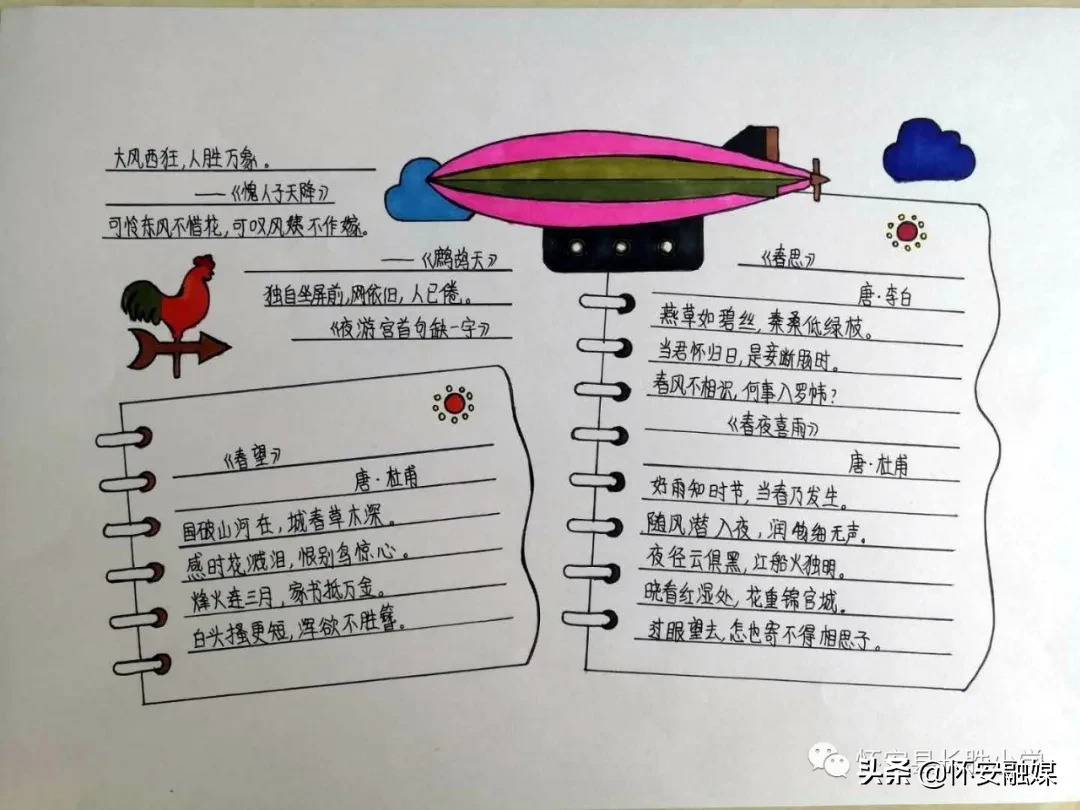 大风西狂,人胜万象。
——《愧人子天降》
可怜东风不惜花,可叹风姨不作嫁。
——《鹧鸪天》
独自坐屏前,网依旧,人已倦。
《夜游宫首句缺一字》
《春望》
唐·杜甫
国破山河在,城春草木深。
感时花溅泪,恨别鸟惊心。
烽火连三月,家书抵万金。
白头搔更短,浑欲不胜簪。
《春思》
唐·李白
燕草如碧丝,秦桑低绿枝。
当君怀归日,是妾断肠时。
春风不相识,何事入罗帏?
《春夜喜雨》
唐·杜甫
好雨知时节,当春乃发生。
随风潜入夜,润物细无声。
夜径云俱黑,江船火独明。
晓看红湿处,花重锦官城。
过眼望去,怎也寄不得相思子。
怀安县长胜小学
头条 @怀安融媒